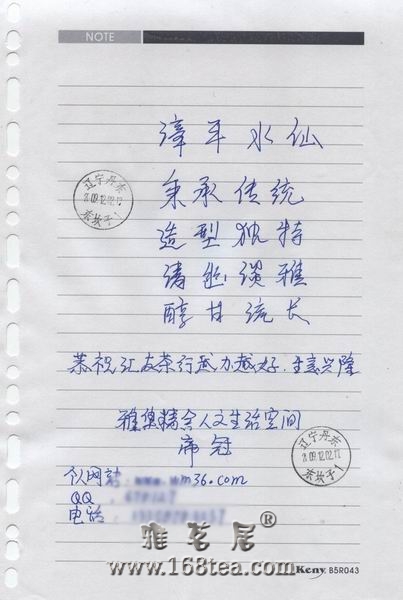 NOTE
漳平水仙
秉承传统
造型独特
清幽淡雅
醇甘流长
恭祝汇友茶行越办越好.生意兴隆
雅集精舍人文生活空间
席冠
辽宁丹东
2009.12.02.17
东坎子1
辽宁丹东
2009.12.02.17
东坎子1
个人网站: m36.com
QQ
电话
雅茗居®
www.168tea.com
Keny. B5R043